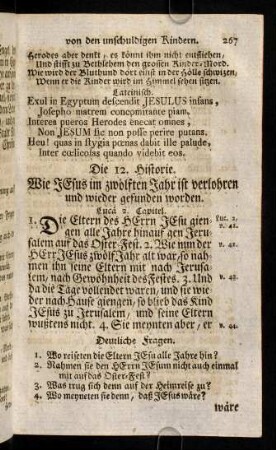 von den unschuldigen Kindern. 267
Herodes aber denkt, es könt ihm nicht entfliehen,
Und stifft zu Bethlehem den grossen Kinder-Mord.
Wie wird der Bluthund dort einst in der Hölle schwitzen,
Wenn er die Kinder wird im Himmel sehen sitzen.
Lateinisch.
Exul in Egyptum descendit JESULUS infans,
Josepho matrem concomitante piam,
Interea pueros Herodes enecat omnes;
Non JESUM sic non posse perire putans.
Heu! quas in stygia pœnas dabit ille palude,
Inter cœlicolas quando videbit eos.
Die 12. Historie.
Wie JEsus im zwölften Jahr ist verlohren
und wieder gefunden worden.
Lucä 2. Capitel.
1. Die Eltern des HErrn JEsu gien- Luc. 2,
gen alle Jahr hinauf gen Jeru- v. 41.
salem auf das Oster-Fest. 2. Wie nun der
HErr JEsus zwölf Jahr alt war, so nah- v. 42.
men ihn seine Eltern mit nach Jerusa-
lem, nach Gewohnheit des Festes. 3. Und v. 43.
da die Tage vollendet waren, und sie wie
der nach Hause giengen, so blieb das Kind
JEsus zu Jerusalem, und seine Eltern
wustens nicht. 4. Sie meynten aber, er v. 44.
Deutliche Fragen.
1. Wo reiseten die Eltern JEsu alle Jahre hin?
2. Nahmen sie den HErrn JEsum nicht auch einmal
mit auf das Oster-Fest?
3. Was trug sich denn auf der Heimreise zu?
4. Wo meyneten sie denn, daß JEsus wäre?
wäre